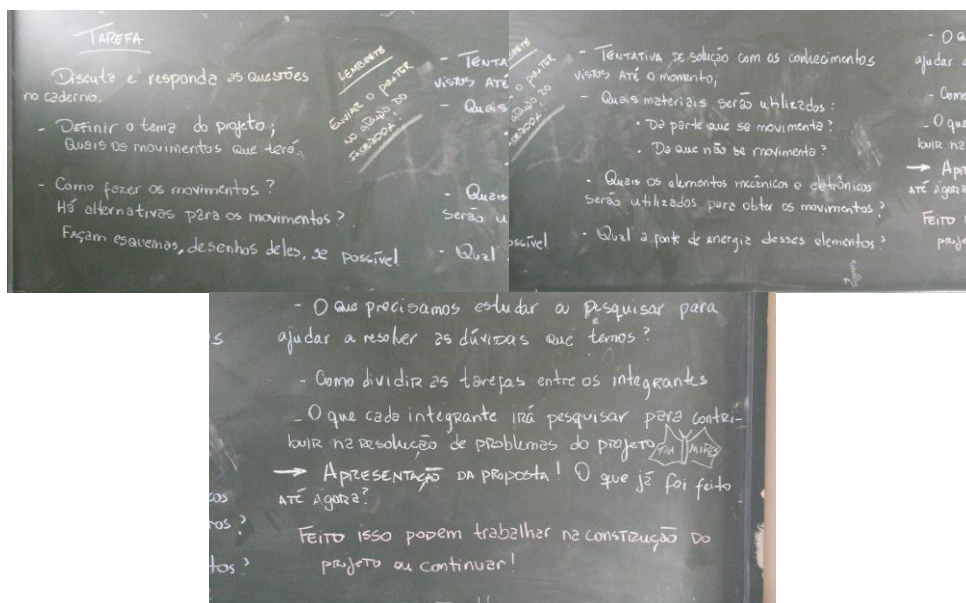 TAREFA
Discuta e responda as questões
no caderno.
- Definir o tema do projeto;
Quais os movimentos que terá.
- Como fazer os movimentos?
Há alternativas para os movimentos?
Façam esquemas, desenhos deles, se possível
LEMBRETE
ENVIAR O POSTER
NO GRUPO DO
FACEBOOK!
- TENTA
VISTOS ATÉ
- Quais
- Quais
serão u
- Qual
- TENTATIVA DE solução com os conhecimentos
VISTOS ATÉ O momento;
- Quais materiais serão utilizados:
• Da parte que se movimenta?
• Da que não se movimenta?
- Quais os elementos mecânicos e eletrônicos
serão utilizados para obter os movimentos?
- Qual a fonte de energia desses elementos?
ssível
- O q
ajudar
- Como
- O que
buir na
→ Apr
ATÉ Agora
FEITO
proje
- O que precisamos estudar ou pesquisar para
ajudar a resolver as dúvidas que temos?
- Como dividir as tarefas entre os integrantes
- O que cada integrante irá pesquisar para contri-
buir na resolução de problemas do projeto
→ APRESENTAÇÃO DA PROPOSTA! O que já foi feito
ATÉ Agora?
FEITO isso podem trabalhar na construção do
projeto ou continuar!
s
cos
ros?
tos?